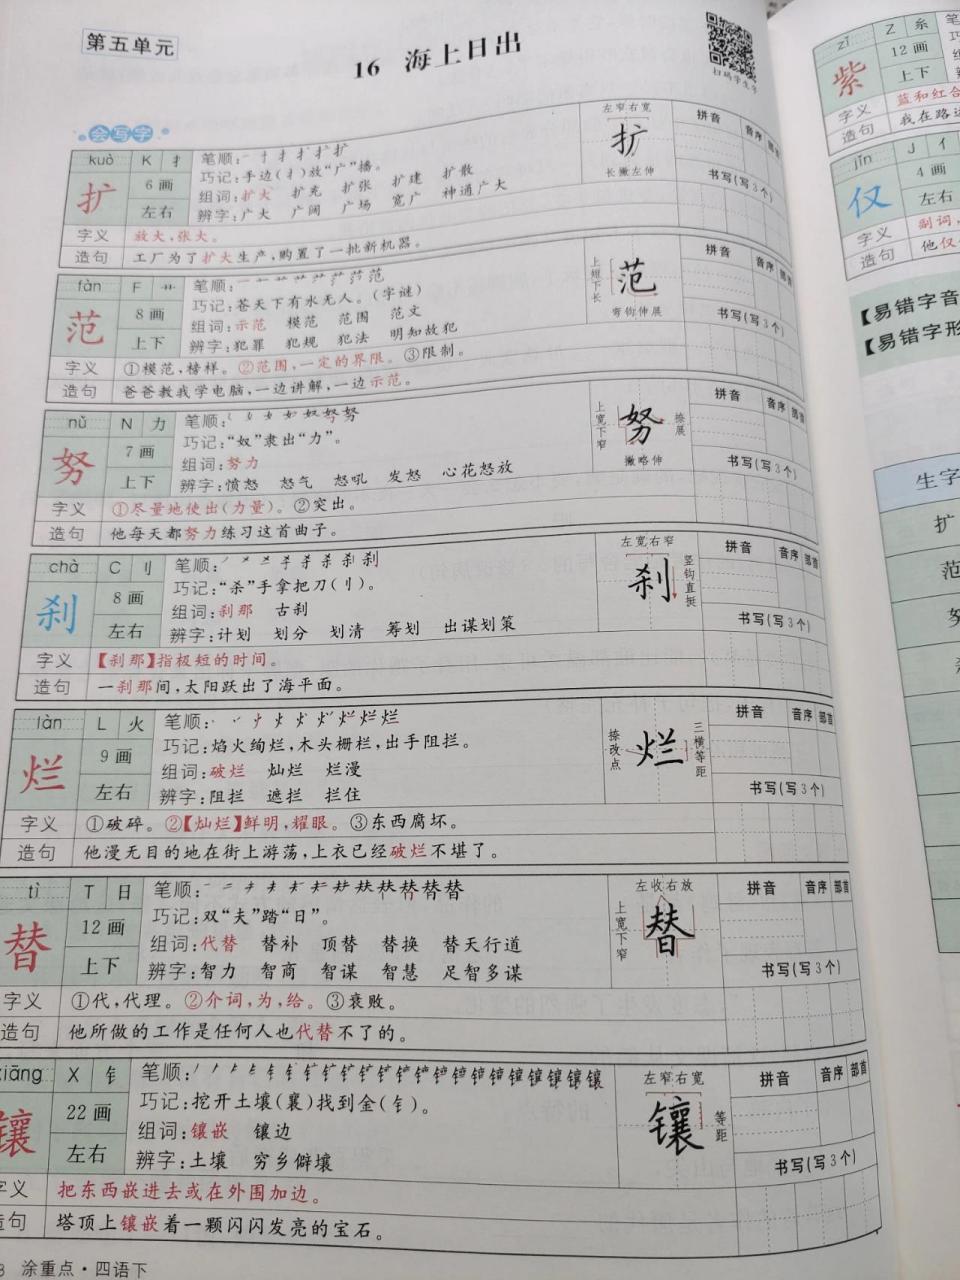 第五单元
16 海上日出
扫码学生字
会写字
kuò K 扌
扩 6画 左右
笔顺:
巧记:手边(扌)放“广”播。
组词:扩大 扩充 扩张 扩建 扩散
辨字:广大 广阔 广场 宽广 神通广大
左窄右宽
扩
长撇左伸
拼音 音序 部首
书写(写3个)
字义 放大,张大。
造句 工厂为了扩大生产,购置了一批新机器。
fàn F 艹
范 8画 上下
笔顺:
巧记:苍天下有水无人。(字谜)
组词:示范 模范 范围 范文
辨字:犯罪 犯规 犯法 明知故犯
上短下长
范
弯钩伸展
拼音 音序 部首
书写(写3个)
字义 ①模范,榜样。②范围,一定的界限。③限制。
造句 爸爸教我学电脑,一边讲解,一边示范。
nǔ N 力
努 7画 上下
笔顺:
巧记:“奴”隶出“力”。
组词:努力
辨字:愤怒 怒气 怒吼 发怒 心花怒放
上宽下窄
努
捺展
撇略伸
拼音 音序 部首
书写(写3个)
字义 ①尽量地使出(力量)。②突出。
造句 他每天都努力练习这首曲子。
chà C 刂
刹 8画 左右
笔顺:
巧记:“杀”手拿把刀(刂)。
组词:刹那 古刹
辨字:计划 划分 划清 筹划 出谋划策
左宽右窄
刹
竖钩直挺
拼音 音序 部首
书写(写3个)
字义 【刹那】指极短的时间。
造句 一刹那间,太阳跃出了海平面。
làn L 火
烂 9画 左右
笔顺:
巧记:焰火绚烂,木头栅栏,出手阻拦。
组词:破烂 灿烂 烂漫
辨字:阻拦 遮拦 拦住
捺改点
烂
三横等距
拼音 音序 部首
书写(写3个)
字义 ①破碎。②【灿烂】鲜明,耀眼。③东西腐坏。
造句 他漫无目的地在街上游荡,上衣已经破烂不堪了。
tì T 日
替 12画 上下
笔顺:
巧记:双“夫”踏“日”。
组词:代替 替补 顶替 替换 替天行道
辨字:智力 智商 智谋 智慧 足智多谋
左收右放
上宽下窄
替
拼音 音序 部首
书写(写3个)
字义 ①代,代理。②介词,为,给。③衰败。
造句 他所做的工作是任何人也代替不了的。
xiāng X 钅
镶 22画 左右
笔顺:
巧记:挖开土壤(襄)找到金(钅)。
组词:镶嵌 镶边
辨字:土壤 穷乡僻壤
左窄右宽
镶
等距
拼音 音序 部首
书写(写3个)
字义 把东西嵌进去或在外围加边。
造句 塔顶上镶嵌着一颗闪闪发亮的宝石。
8 涂重点·四语下
zǐ Z 糸
紫 12画 上下
字义 蓝和红合
造句 我在路边
jǐn J 亻
仅 4画 左右
字义 副词,
造句 他仅
【易错字音
【易错字形
生字
扩
范